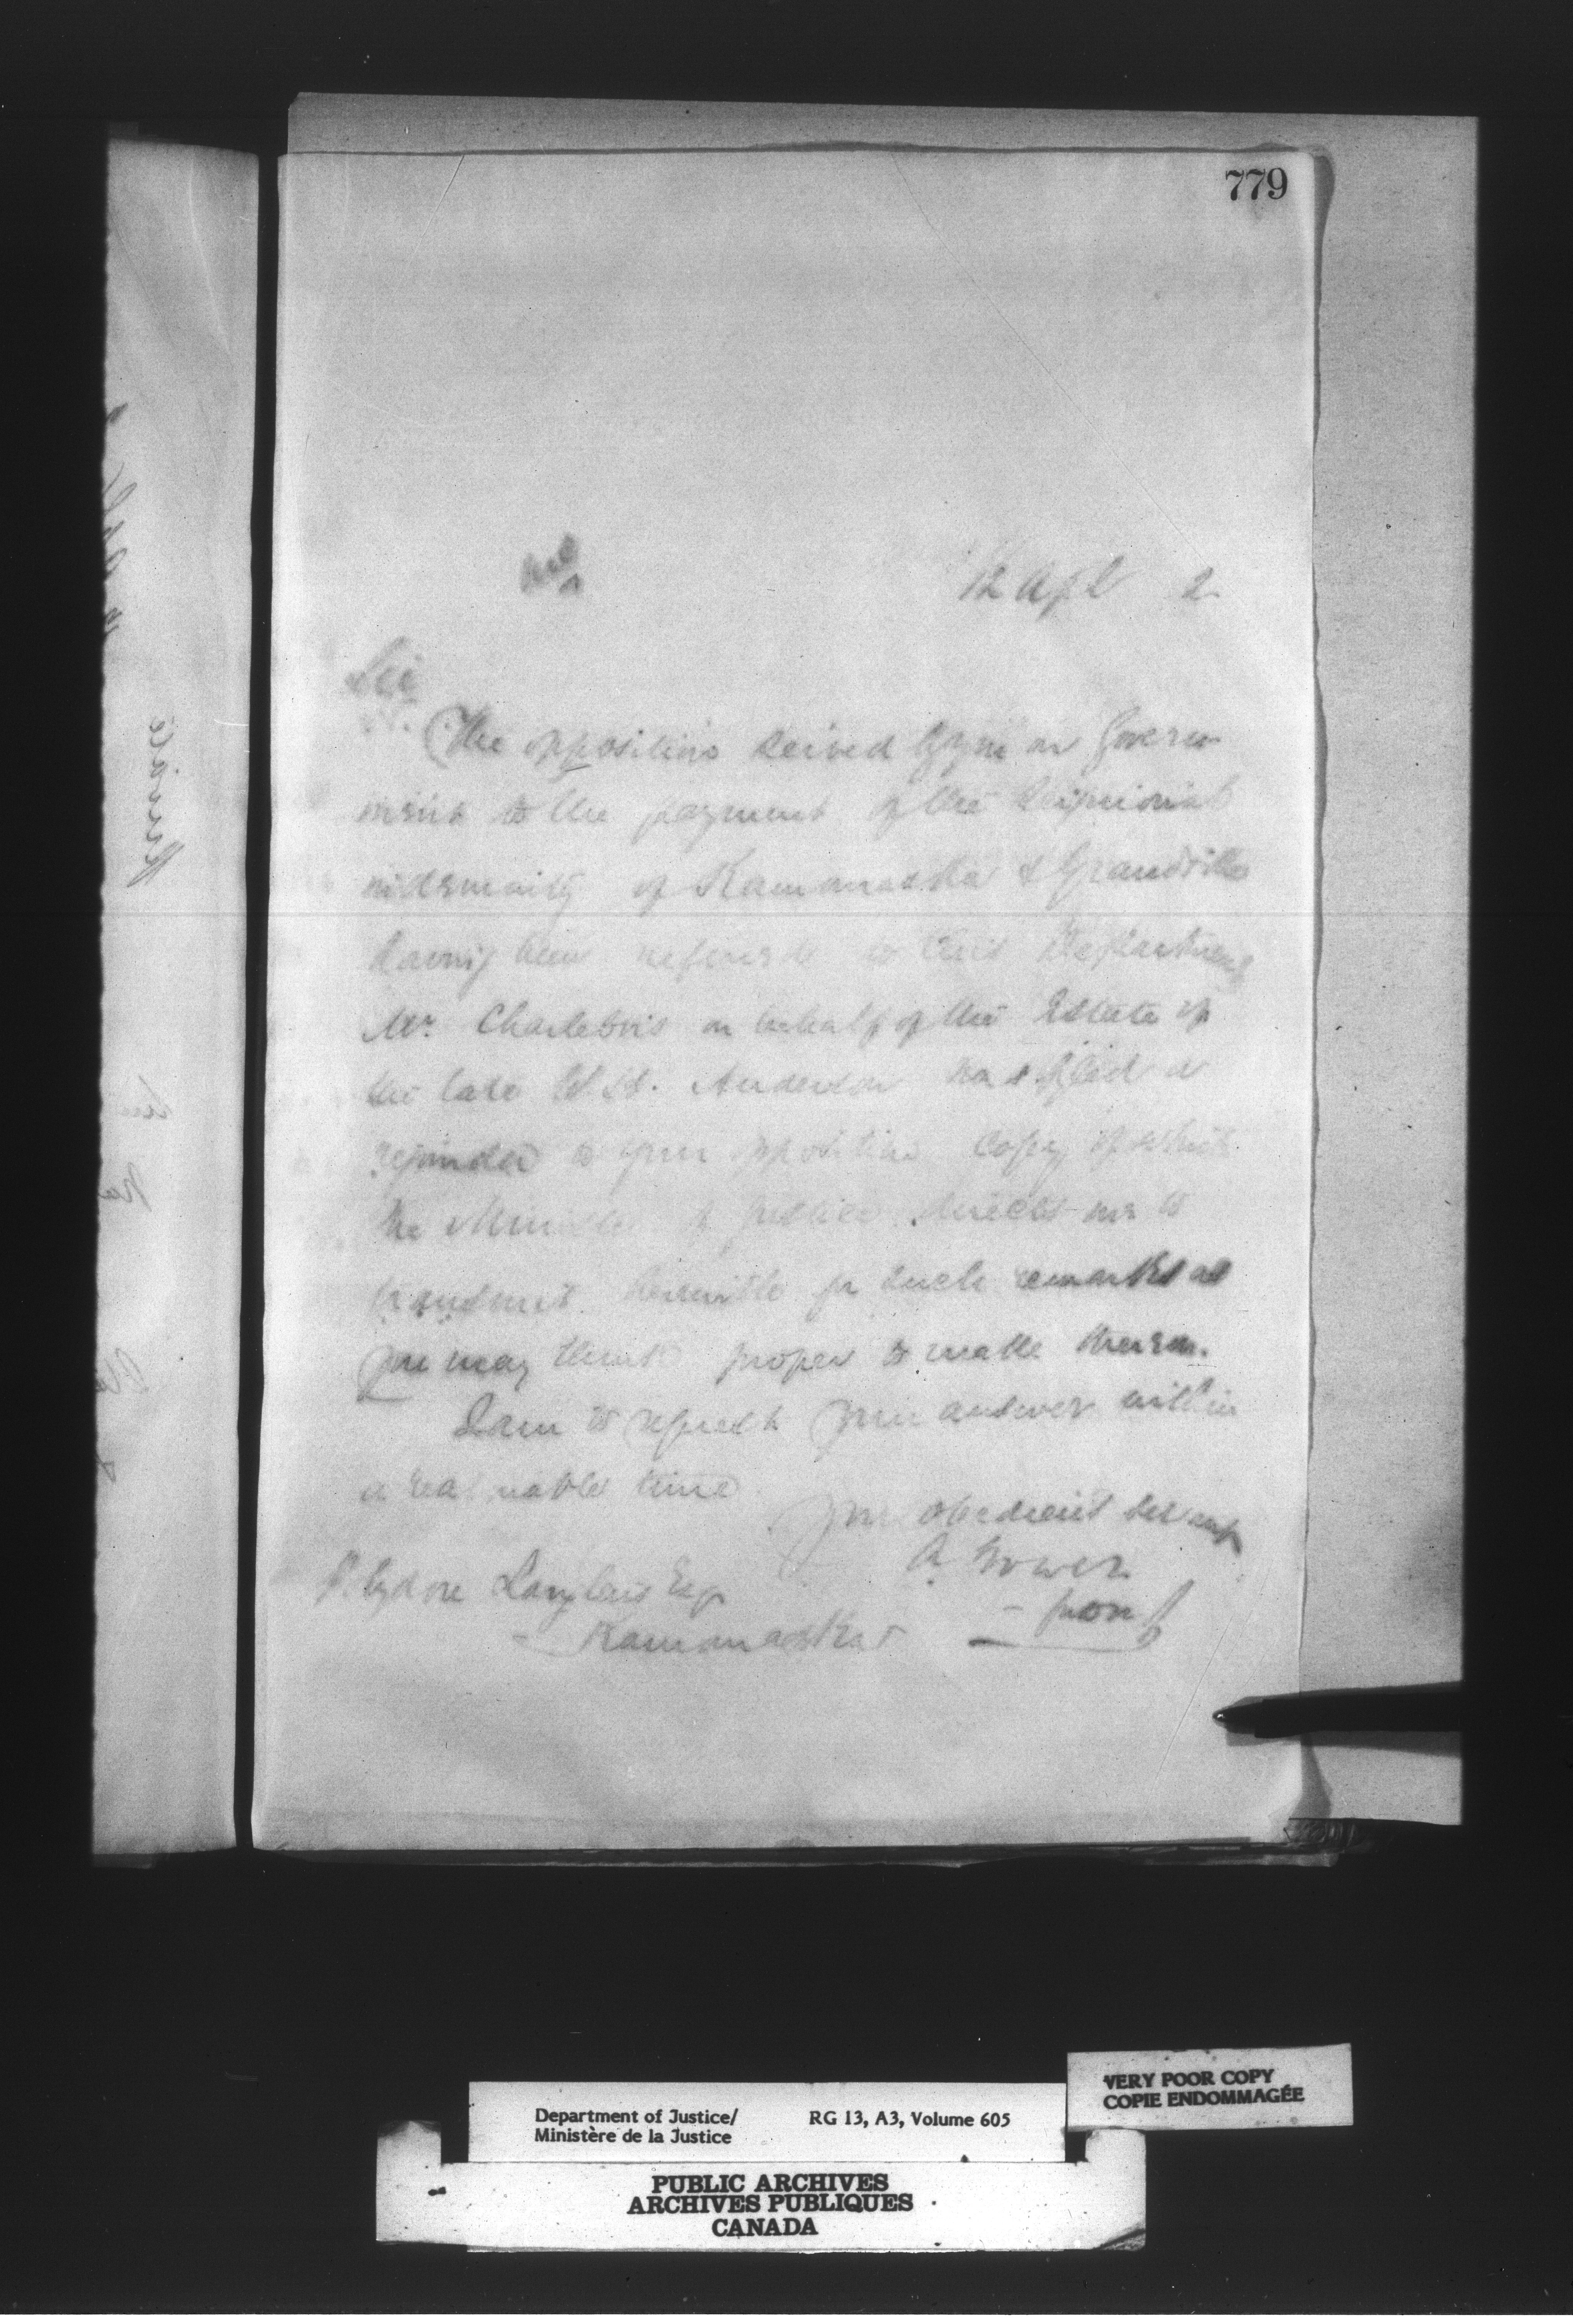 779
12 Apl 2
Sir
The oppositions served by you on Govern
ment to the payment of the Seigniorial
indemnity of Kamouraska & Grandville
having been referred to this Department
Mr. Charlebois on behalf of the Estate of
the late Anderson has filed a
rejoinder to your opposition copy of which
the Minister of Justice directs me to
transmit herewith for such remarks as
you may think proper to make thereon.
I am to request your answer within
a reasonable time
Your obedient servant
A. Power
Polydore Langlais Esqr
Kamouraska
VERY POOR COPY
COPIE ENDOMMAGÉE
Department of Justice/ RG 13, A3, Volume 605
Ministère de la Justice
PUBLIC ARCHIVES
ARCHIVES PUBLIQUES
CANADA